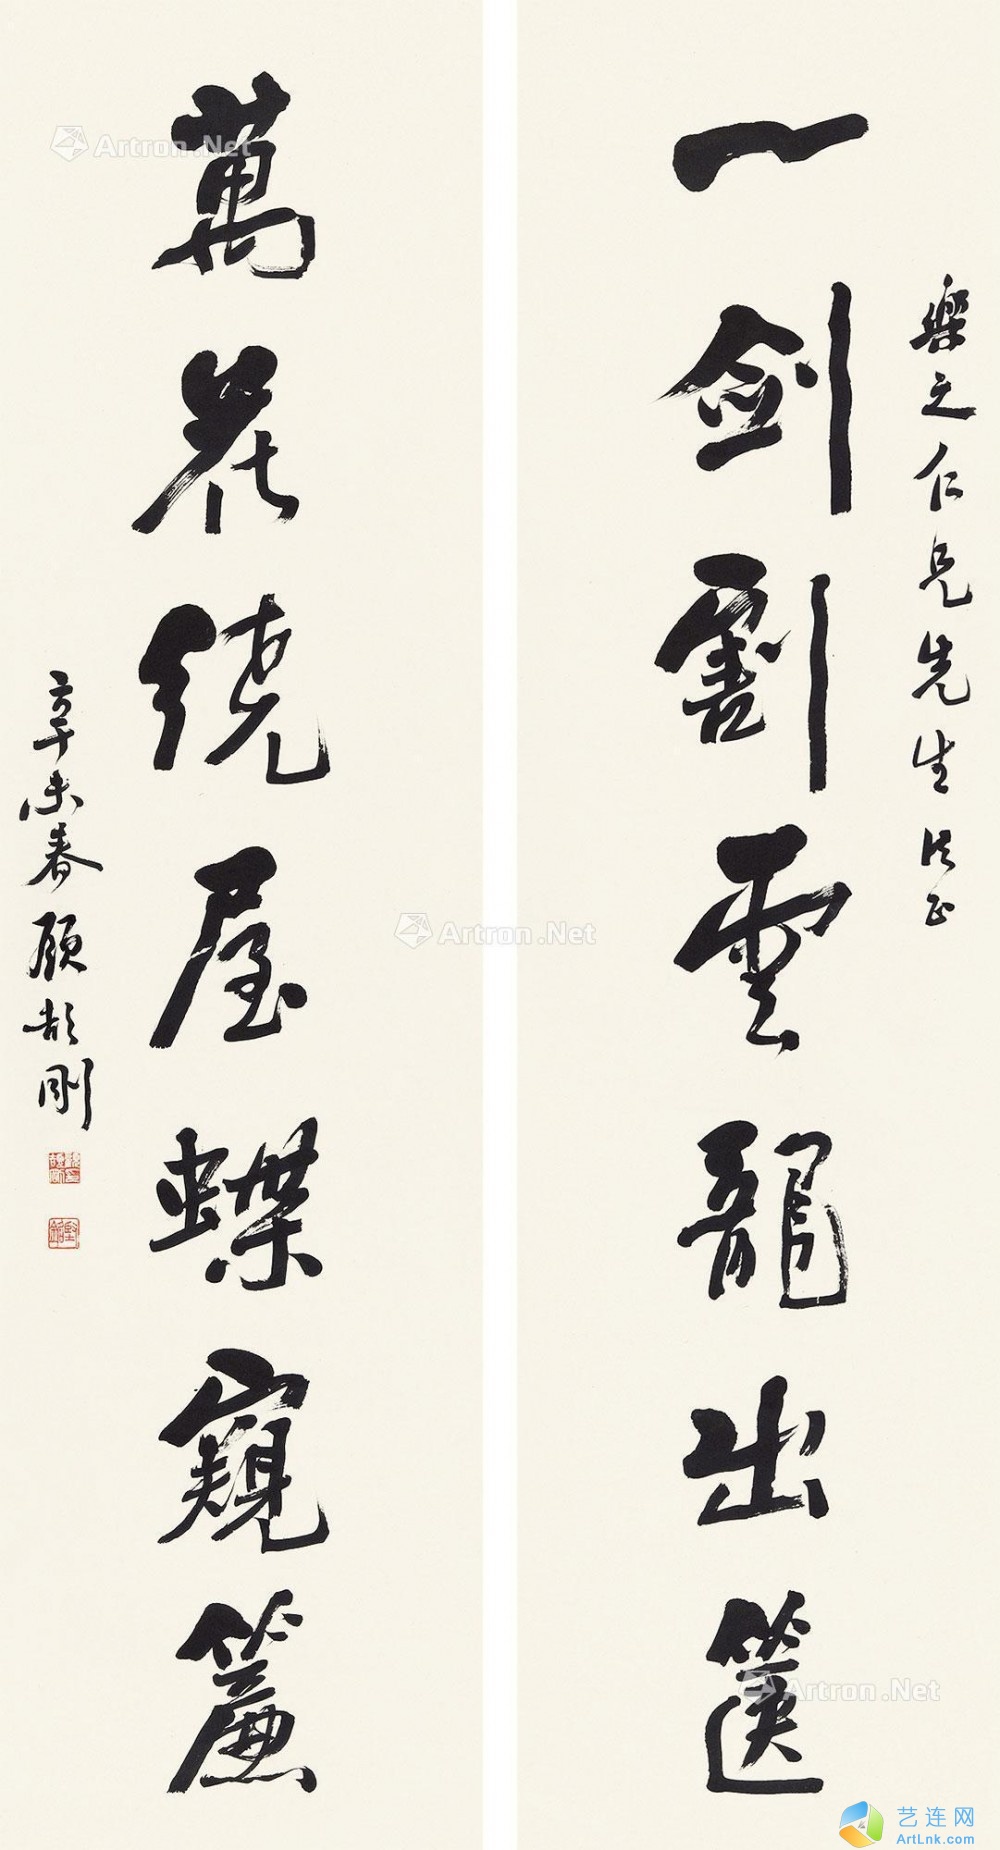 樂之仁兄先生法正
一劍割雲龍出篋
萬花繞屋蝶窺簾
辛未春顧頡剛
Artron.Net
Artron.Net
Artron.Net
艺连网
ArtLnk.com